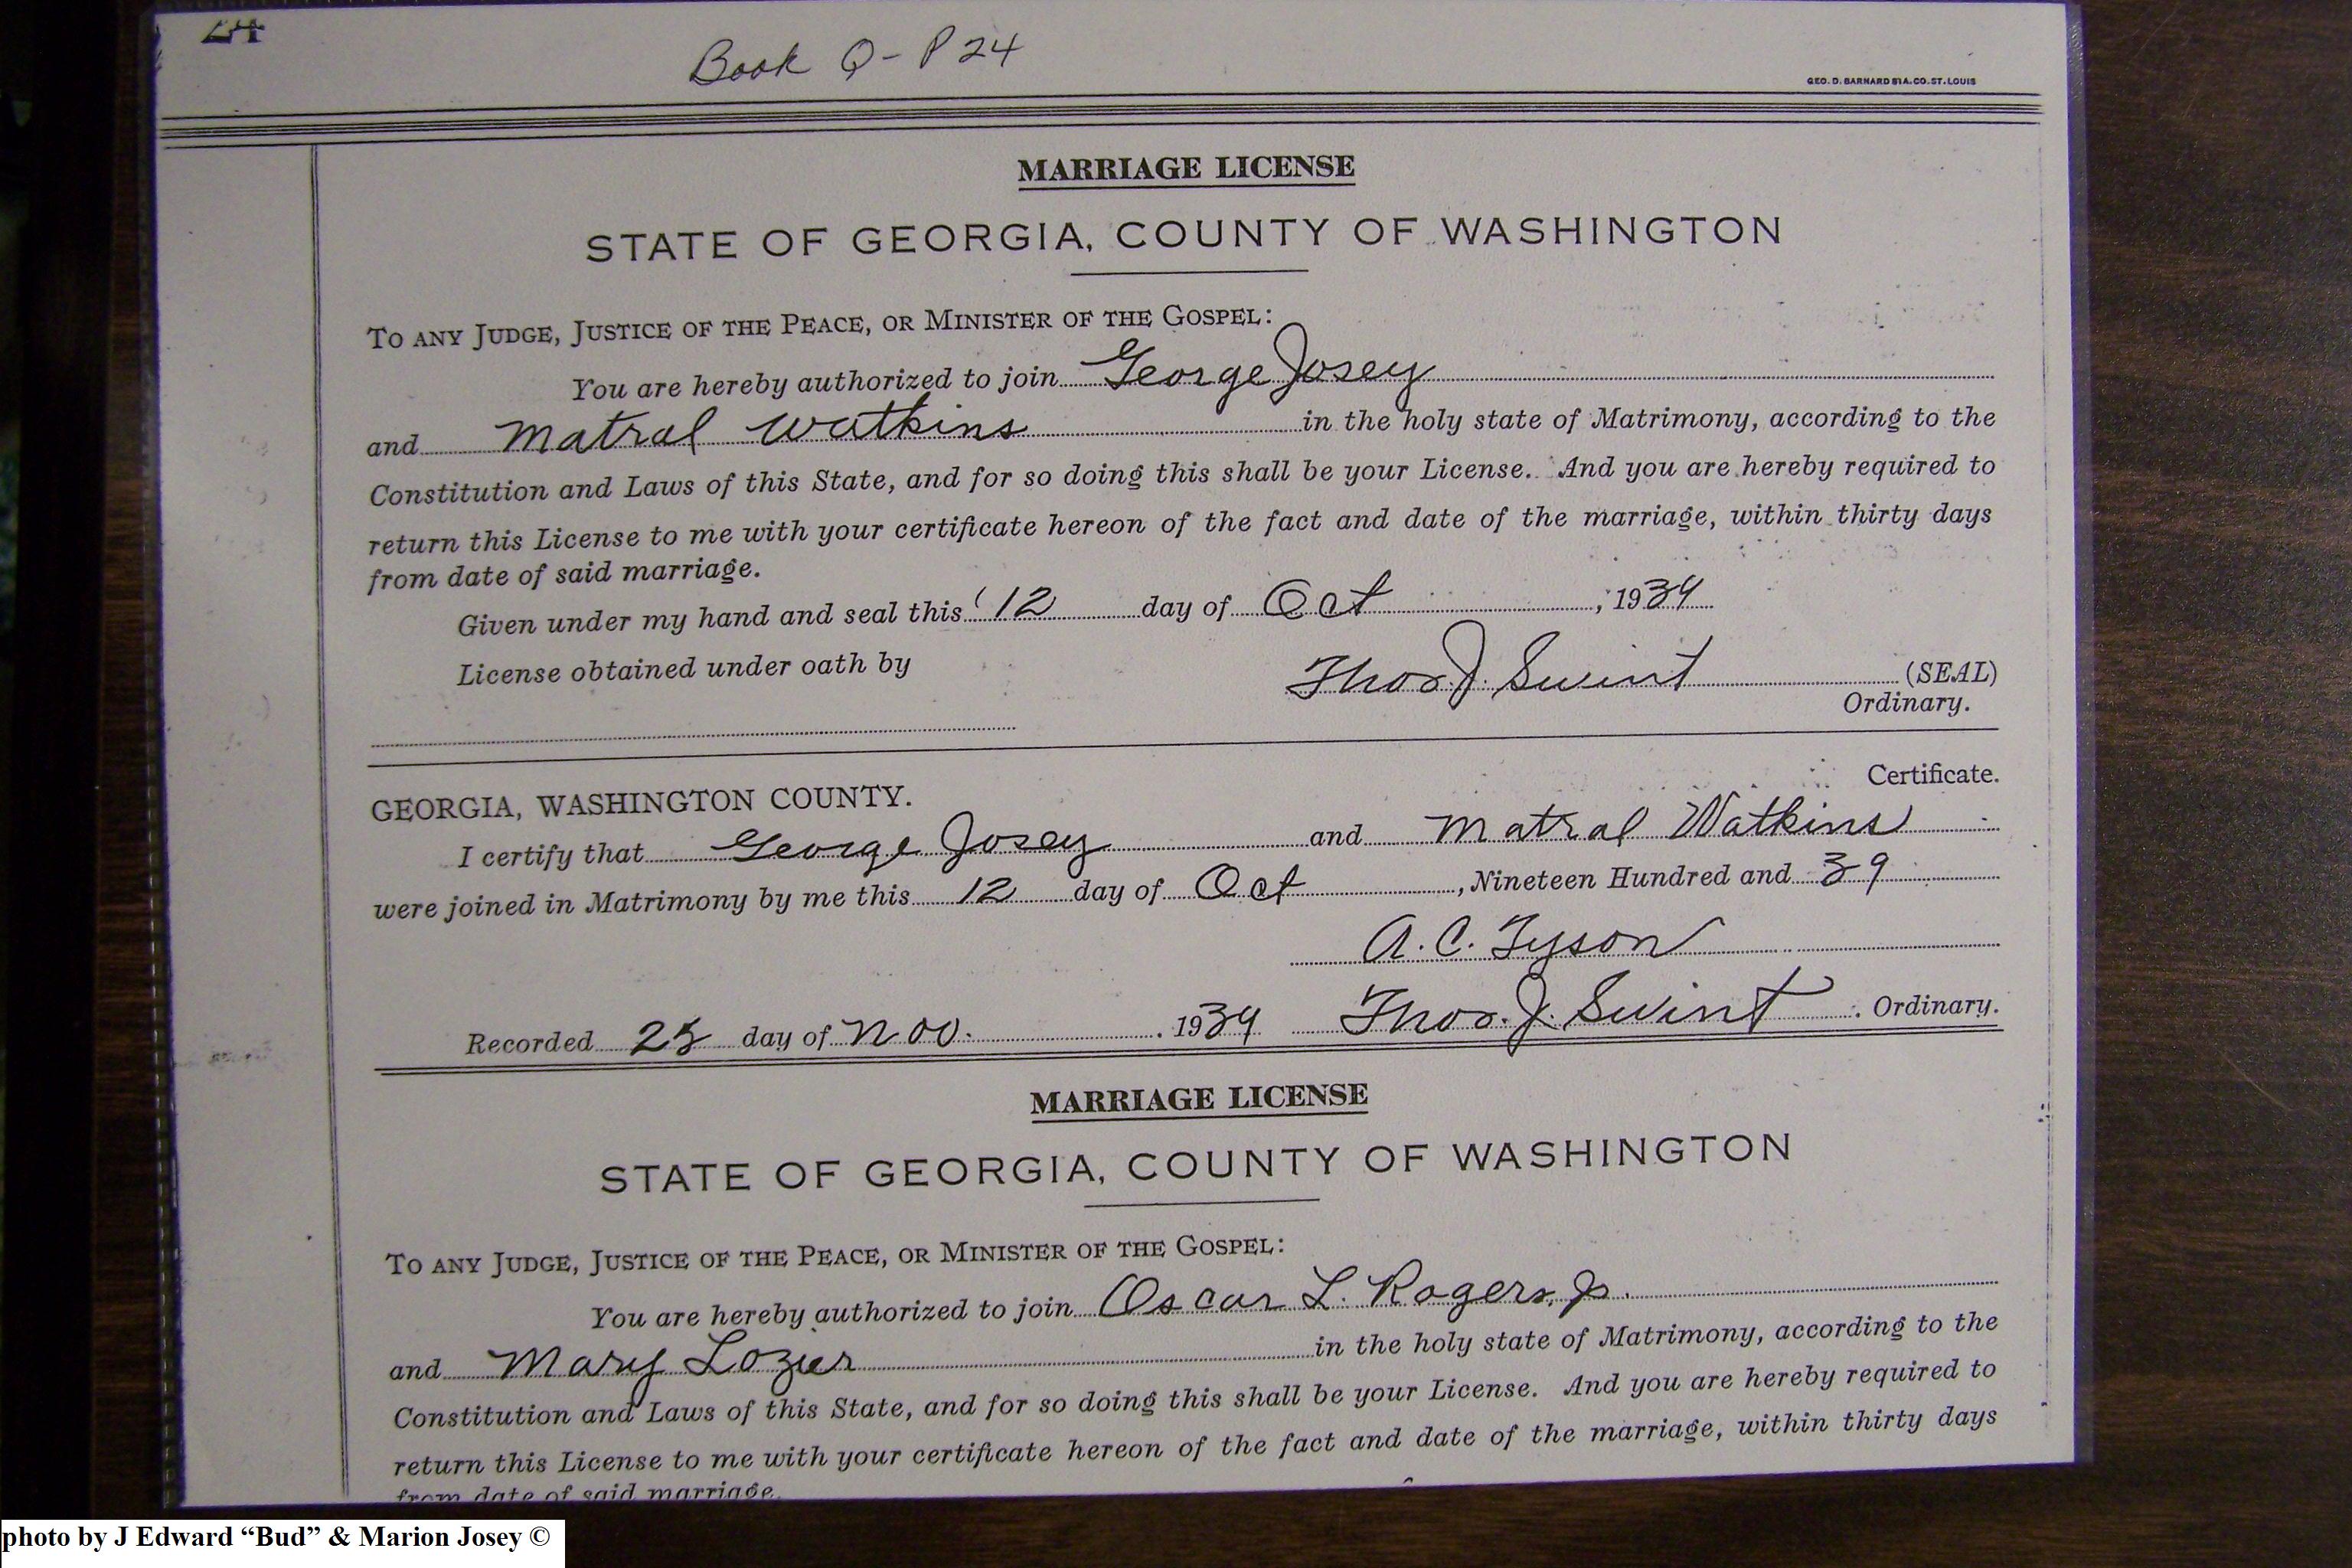 24
Book Q - P 24
GEO. D. BARNARD STA. CO. ST. LOUIS
MARRIAGE LICENSE
STATE OF GEORGIA, COUNTY OF WASHINGTON
TO ANY JUDGE, JUSTICE OF THE PEACE, OR MINISTER OF THE GOSPEL:
You are hereby authorized to join George Josey
and Matral Watkins in the holy state of Matrimony, according to the
Constitution and Laws of this State, and for so doing this shall be your License. And you are hereby required to
return this License to me with your certificate hereon of the fact and date of the marriage, within thirty days
from date of said marriage.
Given under my hand and seal this 12 day of Oct, 1939
License obtained under oath by
Thos. J. Swint (SEAL)
Ordinary.
Certificate.
GEORGIA, WASHINGTON COUNTY.
I certify that George Josey and Matral Watkins
were joined in Matrimony by me this 12 day of Oct, Nineteen Hundred and 39
A. C. Tyson
Recorded day of Nov. 1939 Thos. J. Swint. Ordinary.
MARRIAGE LICENSE
STATE OF GEORGIA, COUNTY OF WASHINGTON
TO ANY JUDGE, JUSTICE OF THE PEACE, OR MINISTER OF THE GOSPEL:
You are hereby authorized to join Oscar L. Rogers, Jr.
and Mary Lozier in the holy state of Matrimony, according to the
Constitution and Laws of this State, and for so doing this shall be your License. And you are hereby required to
return this License to me with your certificate hereon of the fact and date of the marriage, within thirty days
from date of said marriage.
photo by J Edward “Bud” & Marion Josey ©